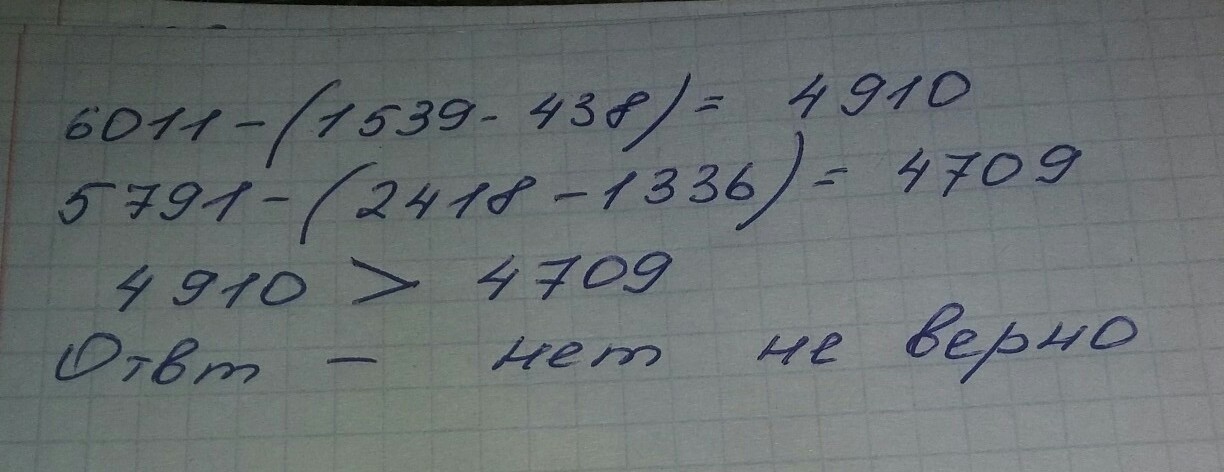 6011-(1539-438)= 4910
5791-(2418-1336)= 4709
4910 > 4709
Ответ - нет не верно